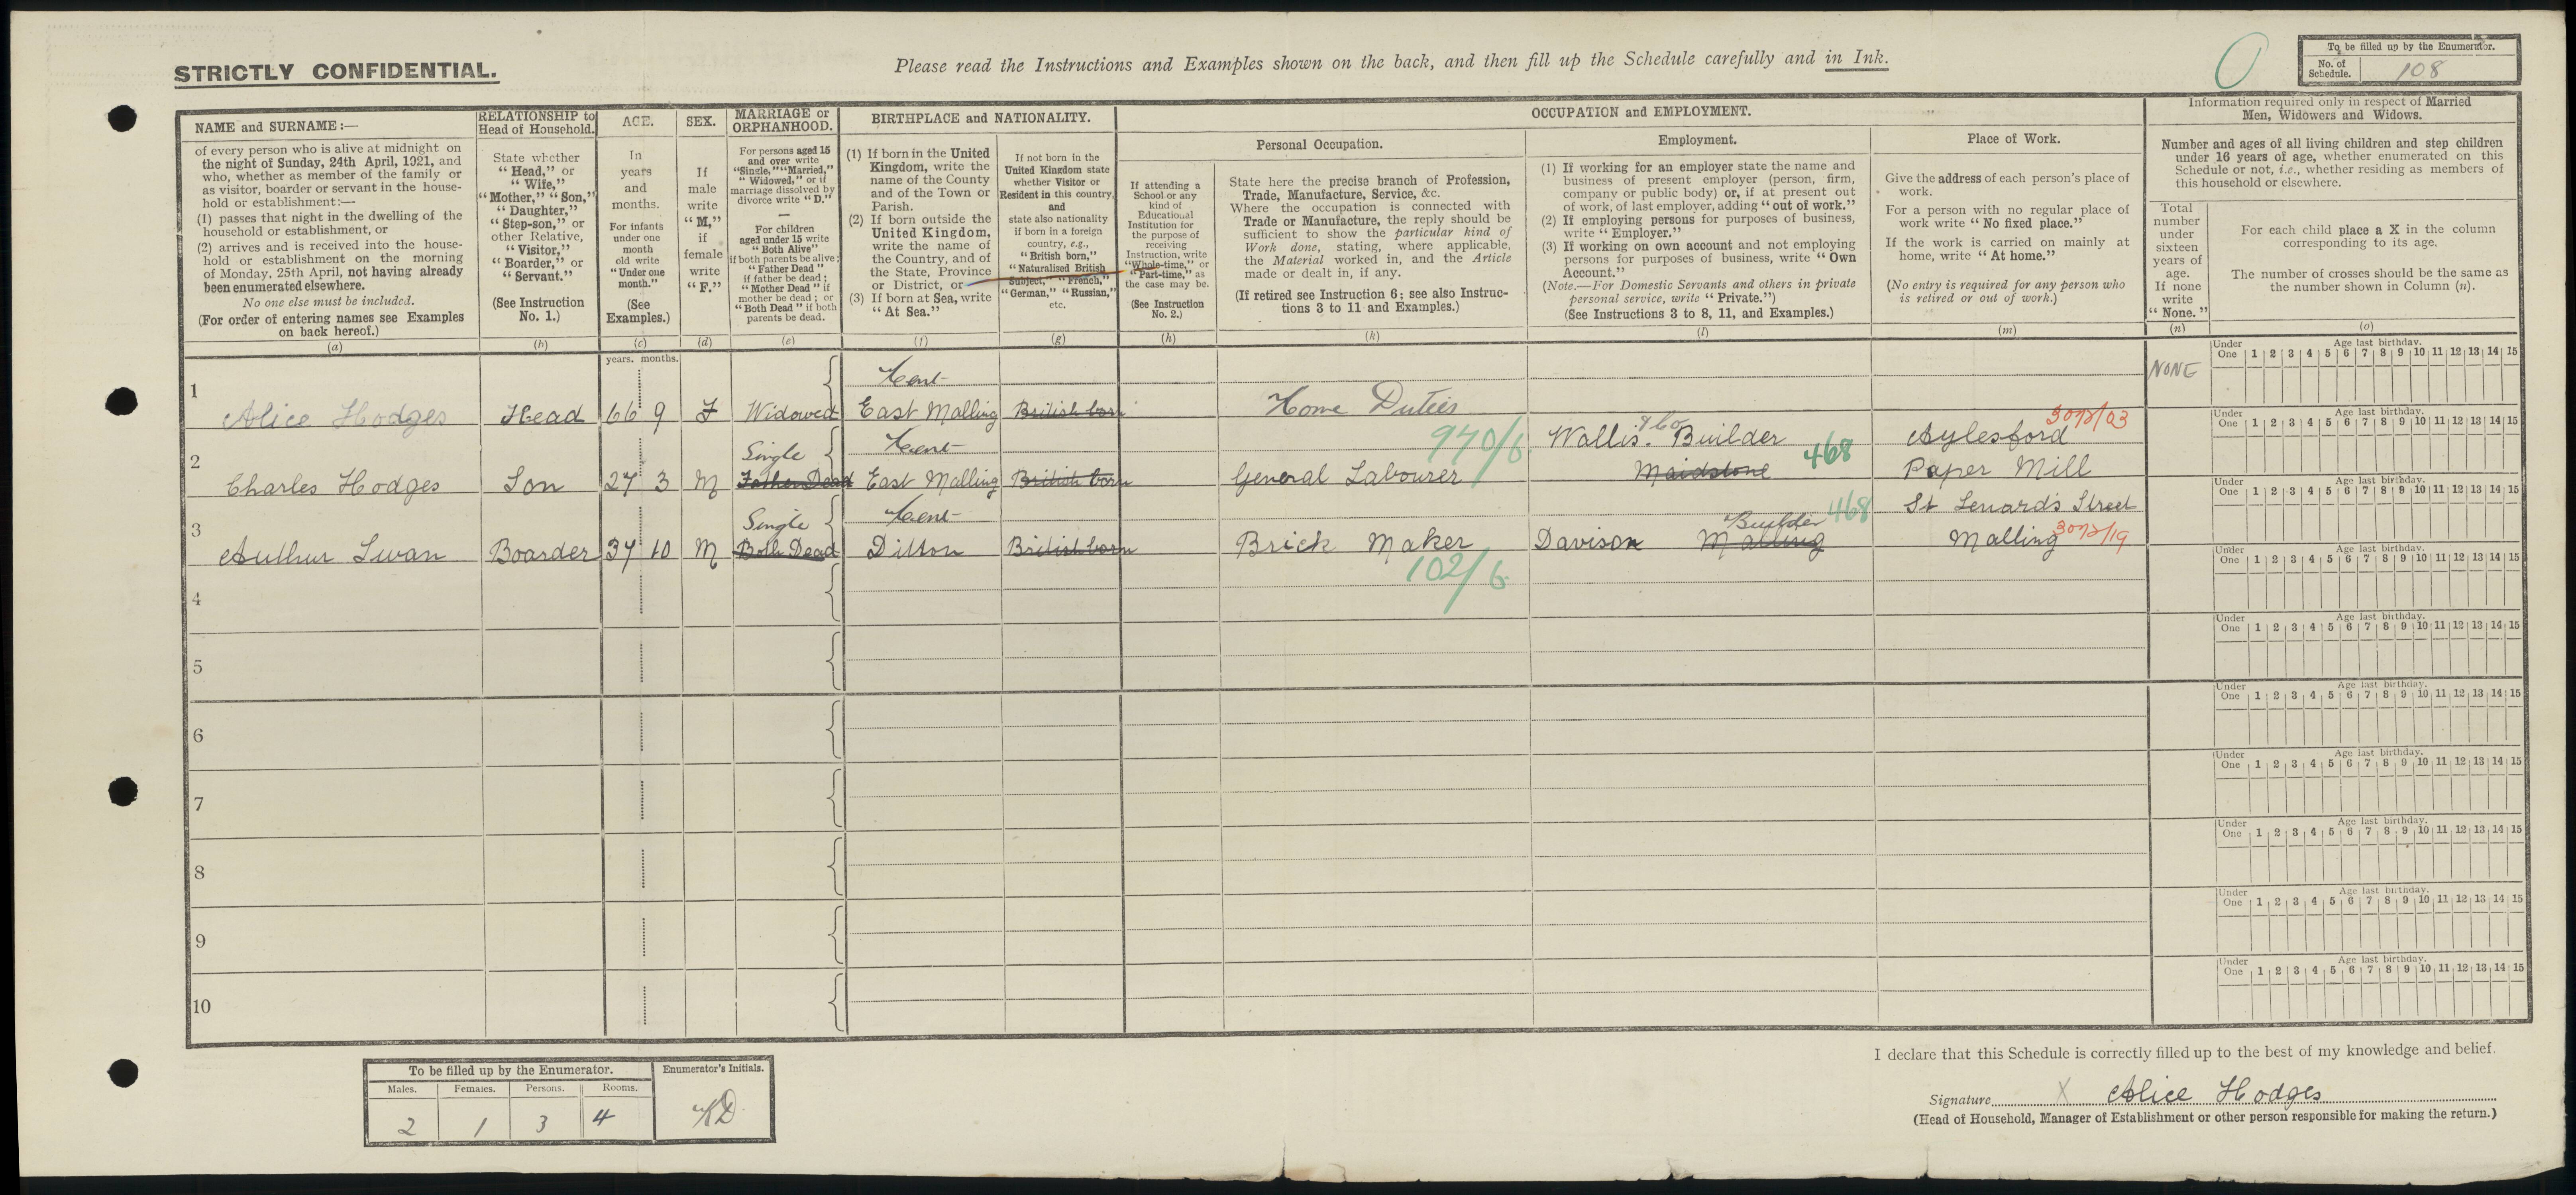 STRICTLY CONFIDENTIAL.
Please read the Instructions and Examples shown on the back, and then fill up the Schedule carefully and in Ink.
To be filled up by the Enumerator.
No. of Schedule. 108
NAME and SURNAME:—
of every person who is alive at midnight on
the night of Sunday, 24th April, 1921, and
who, whether as member of the family or
as visitor, boarder or servant in the house-
hold or establishment:—
(1) passes that night in the dwelling of the
household or establishment, or
(2) arrives and is received into the house-
hold or establishment on the morning
of Monday, 25th April, not having already
been enumerated elsewhere.
No one else must be included.
(For order of entering names see Examples
on back hereof.)
(a)
RELATIONSHIP to
Head of Household.
State whether
"Head," or
"Wife,"
"Mother," "Son,"
"Daughter,"
"Step-son," or
other Relative,
"Visitor,"
"Boarder," or
"Servant."
(See Instruction
No. 1.)
(b)
AGE.
In
years
and
months.
For infants
under one
month
old write
"Under one
month."
(See
Examples.)
(c)
SEX.
If
male
write
"M,"
if
female
write
"F."
(d)
MARRIAGE or
ORPHANHOOD.
For persons aged 15
and over write
"Single," "Married,"
"Widowed," or if
marriage dissolved by
divorce write "D."
—
For children
aged under 15 write
if both parents be alive;
"Both Alive"
"Father Dead"
if father be dead;
"Mother Dead" if
mother be dead; or
"Both Dead" if both
parents be dead.
(e)
BIRTHPLACE and NATIONALITY.
(1) If born in the United
Kingdom, write the
name of the County
and of the Town or
Parish.
(2) If born outside the
United Kingdom,
write the name of
the Country, and of
the State, Province
or District, or
(3) If born at Sea, write
"At Sea."
(f)
If not born in the
United Kingdom state
whether Visitor or
Resident in this country,
and
state also nationality
if born in a foreign
country, e.g.,
"British born,"
"Naturalised British
Subject," "French,"
"German," "Russian,"
etc.
(g)
OCCUPATION and EMPLOYMENT.
If attending a
School or any
kind of
Educational
Institution for
the purpose of
receiving
Instruction, write
"Whole-time," or
"Part-time," as
the case may be.
(See Instruction
No. 2.)
(h)
Personal Occupation.
State here the precise branch of Profession,
Trade, Manufacture, Service, &c.
Where the occupation is connected with
Trade or Manufacture, the reply should be
sufficient to show the particular kind of
Work done, stating, where applicable,
the Material worked in, and the Article
made or dealt in, if any.
(If retired see Instruction 6; see also Instruc-
tions 3 to 11 and Examples.)
(k)
Employment.
(1) If working for an employer state the name and
business of present employer (person, firm,
company or public body) or, if at present out
of work, of last employer, adding "out of work."
(2) If employing persons for purposes of business,
write "Employer."
(3) If working on own account and not employing
persons for purposes of business, write "Own
Account."
(Note.—For Domestic Servants and others in private
personal service, write "Private.")
(See Instructions 3 to 8, 11, and Examples.)
(l)
Place of Work.
Give the address of each person's place of
work.
For a person with no regular place of
work write "No fixed place."
If the work is carried on mainly at
home, write "At home."
(No entry is required for any person who
is retired or out of work.)
(m)
Information required only in respect of Married
Men, Widowers and Widows.
Number and ages of all living children and step children
under 16 years of age, whether enumerated on this
Schedule or not, i.e., whether residing as members of
this household or elsewhere.
Total
number
under
sixteen
years of
age.
If none
write
"None."
(n)
For each child place a X in the column
corresponding to its age.
The number of crosses should be the same as
the number shown in Column (n).
(o)
years. months.
Under One
Age last birthday.
1 2 3 4 5 6 7 8 9 10 11 12 13 14 15
Kent
1 Alice Hodges Head 66 9 F Widowed East Malling British born Home Duties NONE
Under One
Age last birthday.
1 2 3 4 5 6 7 8 9 10 11 12 13 14 15
Single Kent 970/6 Wallis. & Co Builder Aylesford 3072/03
2 Charles Hodges Son 27 3 M Father Dead East Malling British born General Labourer Maidstone 468 Paper Mill
Under One
Age last birthday.
1 2 3 4 5 6 7 8 9 10 11 12 13 14 15
Single Kent Builder 468 St Lenards Street
3 Authur Swan Boarder 37 10 M Both Dead Ditton British born Brick Maker Davison Malling Malling 3072/19
102/6
Under One
Age last birthday.
1 2 3 4 5 6 7 8 9 10 11 12 13 14 15
4
Under One
Age last birthday.
1 2 3 4 5 6 7 8 9 10 11 12 13 14 15
5
Under One
Age last birthday.
1 2 3 4 5 6 7 8 9 10 11 12 13 14 15
6
Under One
Age last birthday.
1 2 3 4 5 6 7 8 9 10 11 12 13 14 15
7
Under One
Age last birthday.
1 2 3 4 5 6 7 8 9 10 11 12 13 14 15
8
Under One
Age last birthday.
1 2 3 4 5 6 7 8 9 10 11 12 13 14 15
9
Under One
Age last birthday.
1 2 3 4 5 6 7 8 9 10 11 12 13 14 15
10
To be filled up by the Enumerator.
Males. Females. Persons. Rooms.
2 1 3 4
Enumerator's Initials.
I declare that this Schedule is correctly filled up to the best of my knowledge and belief.
Signature X Alice Hodges
(Head of Household, Manager of Establishment or other person responsible for making the return.)